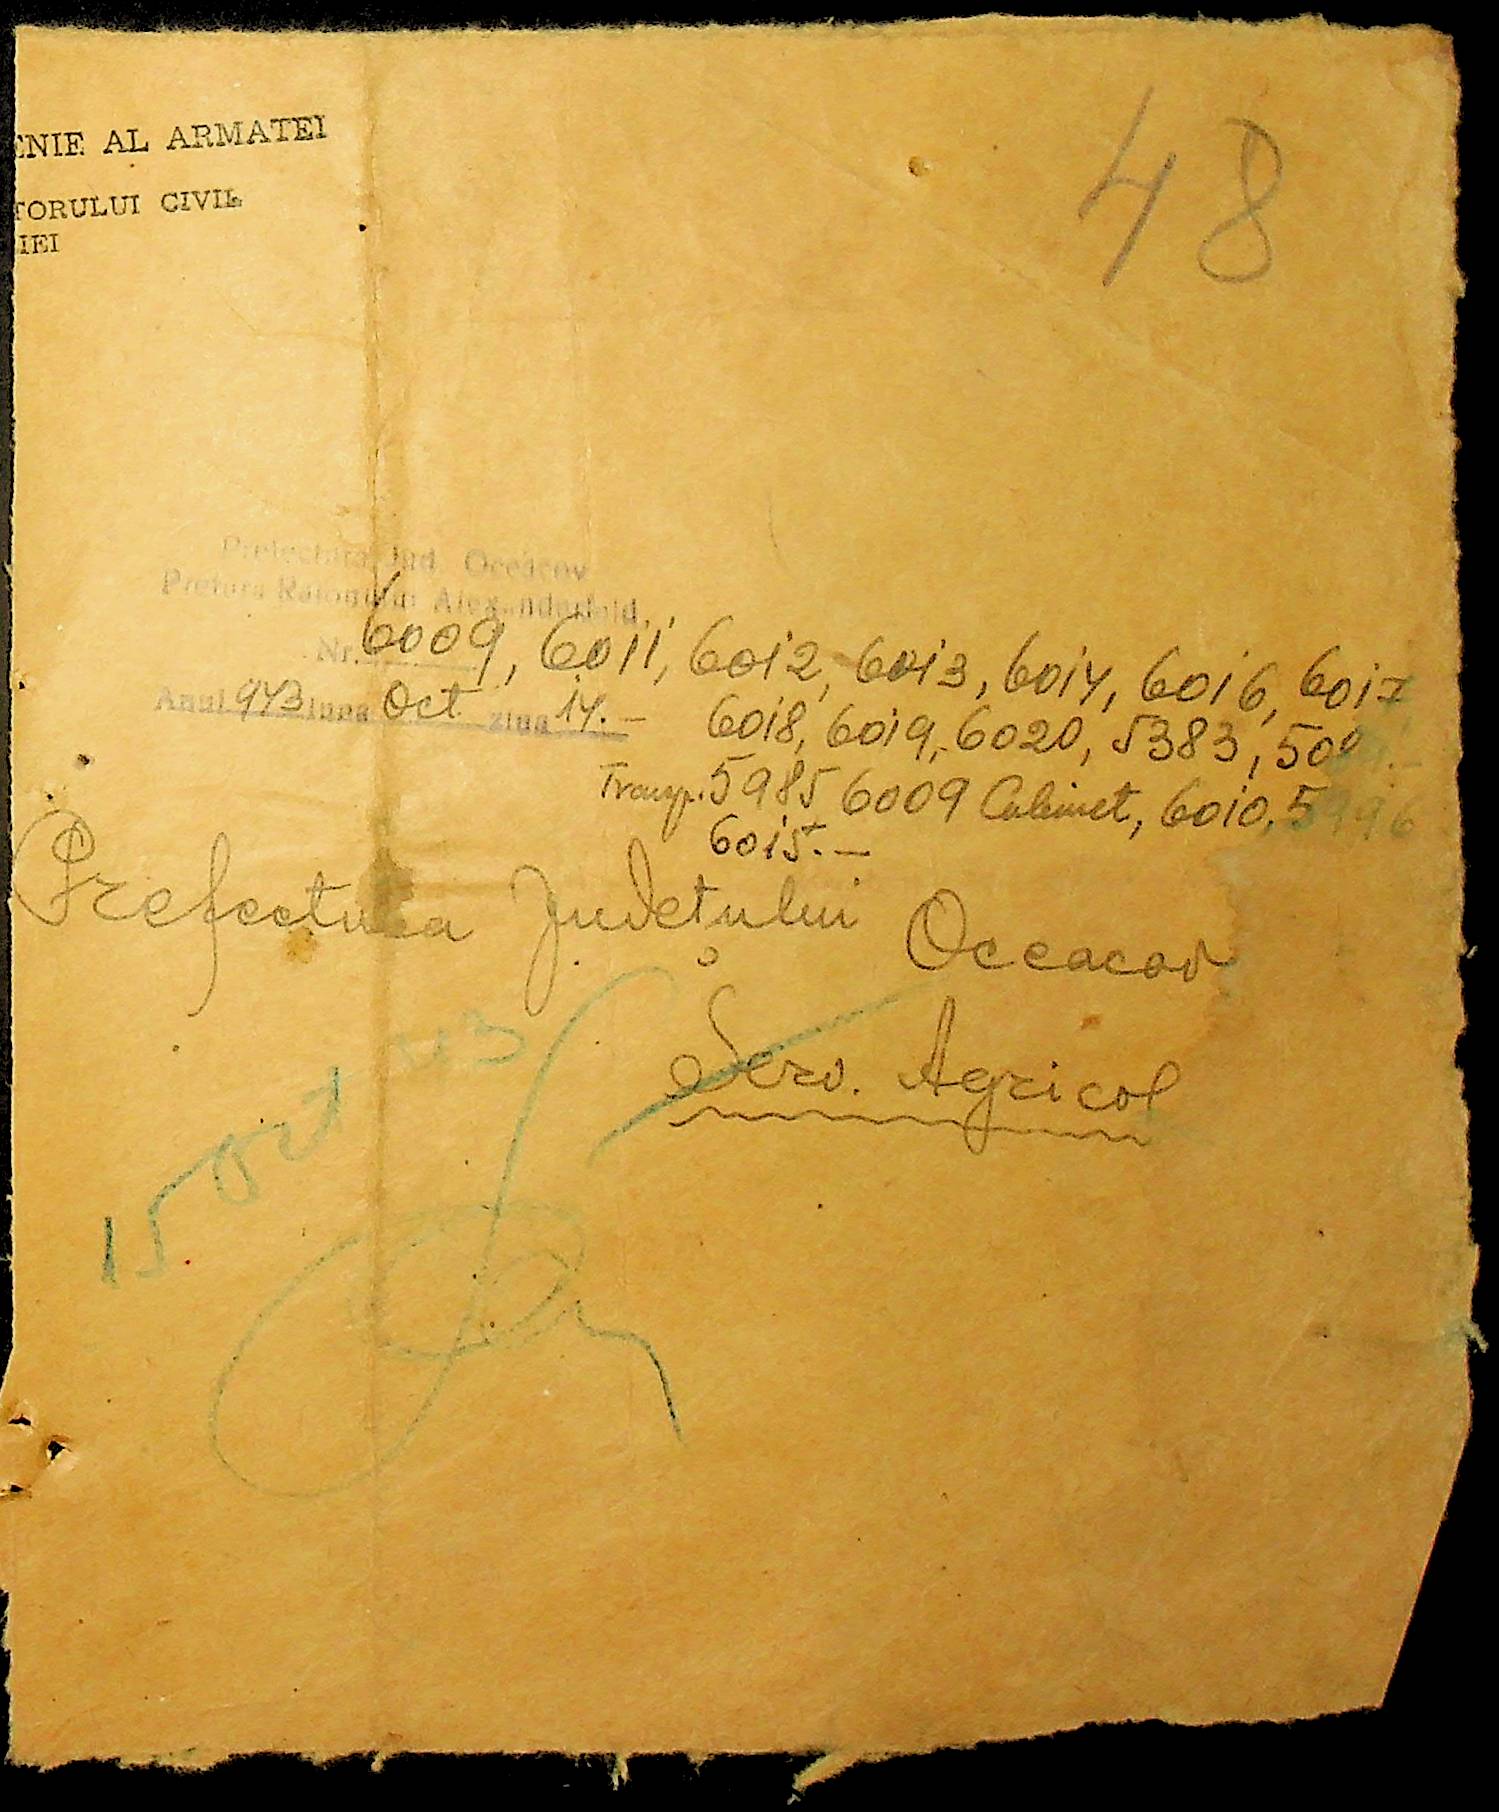 48
ENIE AL ARMATEI
TORULUI CIVIL
IEI
Prefectura Jud. Oceacov
Pretura Raionului Alexanderfeld.
Nr. 6009, 6011, 6012, 6013, 6014, 6016, 6017
Anul 943 luna Oct ziua 14.–
6018, 6019, 6020, 5383,
Transp. 5985 6009 Cabinet, 6010, 5996
6015.–
Prefectura Județului Oceacov
Serv. Agricol
15 Oct 43